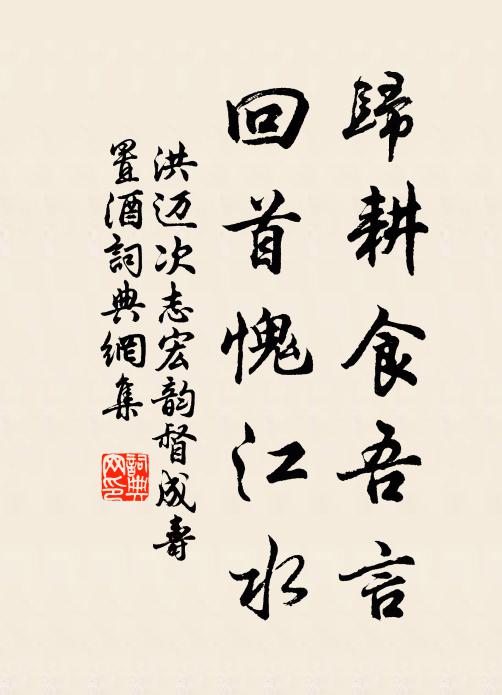 歸耕食吾言
回首愧江水
洪迈次志宏韵督成壽
置酒詞典網集
詞典网印